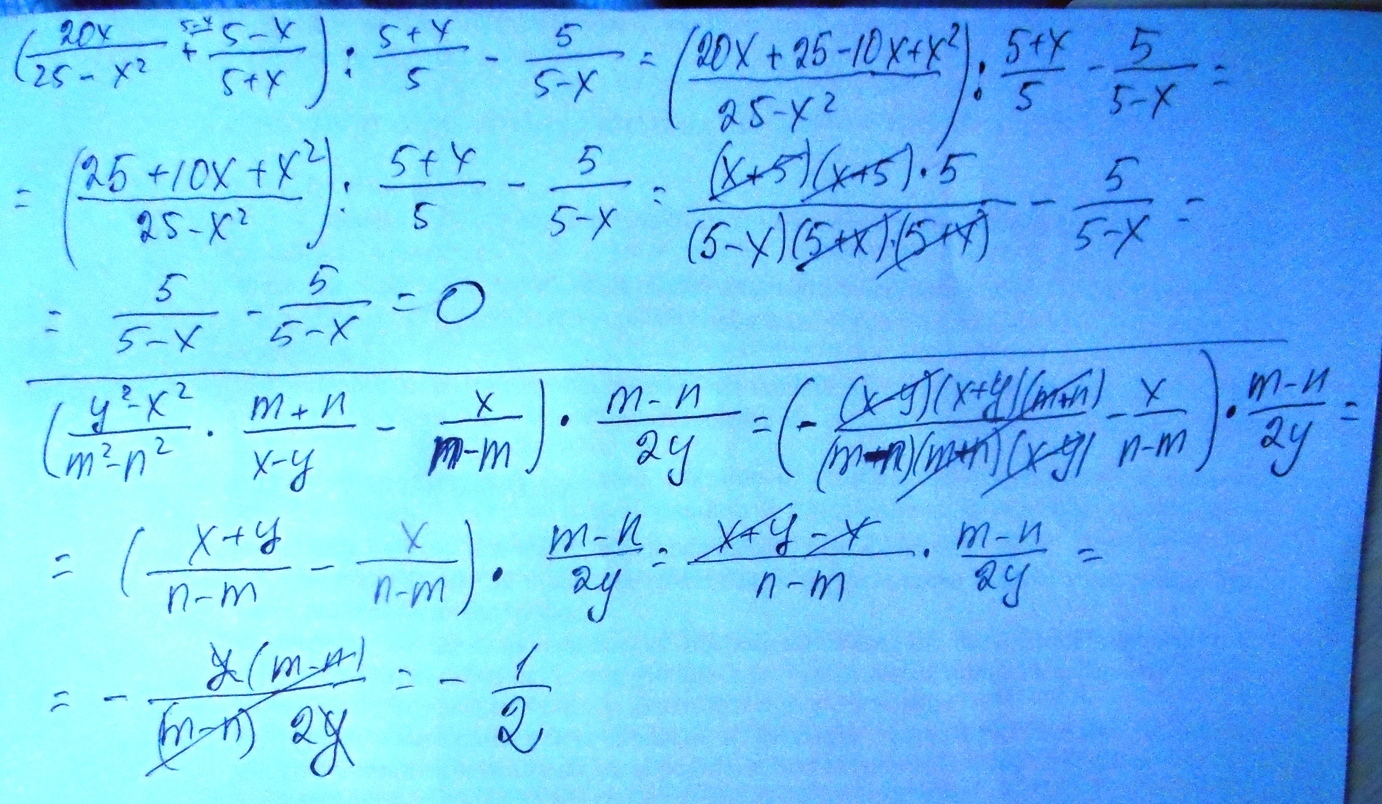 (20x/(25-x²) +^(5-x) (5-x)/(5+x)) : (5+x)/5 - 5/(5-x) = ((20x+25-10x+x²)/(25-x²)) : (5+x)/5 - 5/(5-x) =
= ((25+10x+x²)/(25-x²)) : (5+x)/5 - 5/(5-x) = ((x+5)(x+5)·5)/((5-x)(5+x)·(5+x)) - 5/(5-x) =
= 5/(5-x) - 5/(5-x) = 0
((y²-x²)/(m²-n²) · (m+n)/(x-y) - x/(n-m)) · (m-n)/(2y) = (- ((x-y)(x+y)(m+n))/((m-n)(m+n)(x-y)) - x/(n-m)) · (m-n)/(2y) =
= ((x+y)/(n-m) - x/(n-m)) · (m-n)/(2y) = (x+y-x)/(n-m) · (m-n)/(2y) =
= - (y(m-n))/((m-n) 2y) = - 1/2